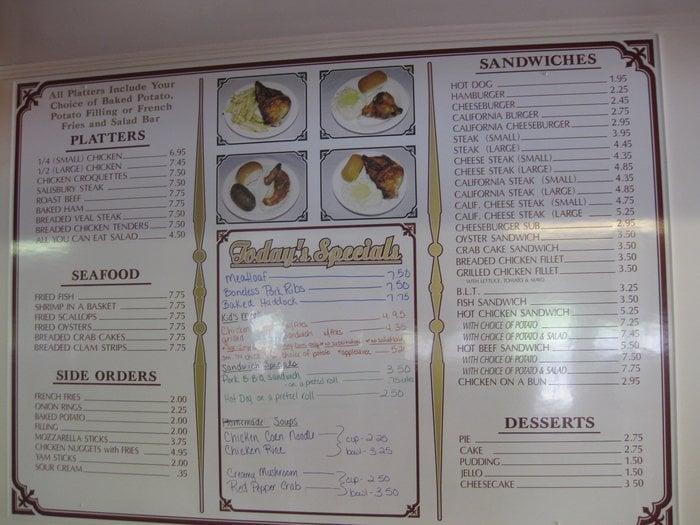 All Platters Include Your
Choice of Baked Potato,
Potato Filling or French
Fries and Salad Bar
PLATTERS
1/4 (SMALL) CHICKEN 6.95
1/2 (LARGE) CHICKEN 7.45
CHICKEN CROQUETTES 7.50
SALISBURY STEAK 7.50
ROAST BEEF 7.75
BAKED HAM 7.75
BREADED VEAL STEAK 7.50
BREADED CHICKEN TENDERS 7.50
ALL YOU CAN EAT SALAD 4.50
SEAFOOD
FRIED FISH 7.75
SHRIMP IN A BASKET 7.75
FRIED SCALLOPS 7.75
FRIED OYSTERS 7.75
BREADED CRAB CAKES 7.75
BREADED CLAM STRIPS 7.75
SIDE ORDERS
FRENCH FRIES 2.00
ONION RINGS 2.25
BAKED POTATO 2.00
FILLING 2.00
MOZZARELLA STICKS 3.75
CHICKEN NUGGETS with FRIES 4.95
YAM STICKS 2.00
SOUR CREAM .35
Today's Specials
Meatloaf 7.50
Boneless Pork Ribs 7.50
Baked Haddock 7.75
Kid's
Chicken w/fries 4.95
grilled sandwich w/fries 4.35
choice of potato applesauce
Sandwich Specials
Pork B-B-Q Sandwich 3.50
on a pretzel roll .75 extra
Hot Dog on a pretzel roll 2.50
Homemade Soups
Chicken Corn Noodle cup - 2.25
Chicken Rice bowl - 3.25
Creamy Mushroom cup - 2.50
Red Pepper Crab bowl - 3.50
SANDWICHES
HOT DOG 1.95
HAMBURGER 2.25
CHEESEBURGER 2.45
CALIFORNIA BURGER 2.75
CALIFORNIA CHEESEBURGER 2.95
STEAK (SMALL) 3.95
STEAK (LARGE) 4.45
CHEESE STEAK (SMALL) 4.35
CHEESE STEAK (LARGE) 4.85
CALIFORNIA STEAK (SMALL) 4.35
CALIFORNIA STEAK (LARGE) 4.85
CALIF. CHEESE STEAK (SMALL) 4.75
CALIF. CHEESE STEAK (LARGE 5.25
CHEESEBURGER SUB 2.95
OYSTER SANDWICH 3.50
CRAB CAKE SANDWICH 3.50
BREADED CHICKEN FILLET 3.50
GRILLED CHICKEN FILLET 3.50
WITH LETTUCE, TOMATO & MAYO
B.L.T. 3.25
FISH SANDWICH 3.50
HOT CHICKEN SANDWICH 5.25
WITH CHOICE OF POTATO 7.25
WITH CHOICE OF POTATO & SALAD 7.45
HOT BEEF SANDWICH 5.50
WITH CHOICE OF POTATO 7.50
WITH CHOICE OF POTATO & SALAD 7.75
CHICKEN ON A BUN 2.95
DESSERTS
PIE 2.75
CAKE 2.75
PUDDING 1.50
JELLO 1.50
CHEESECAKE 3.50